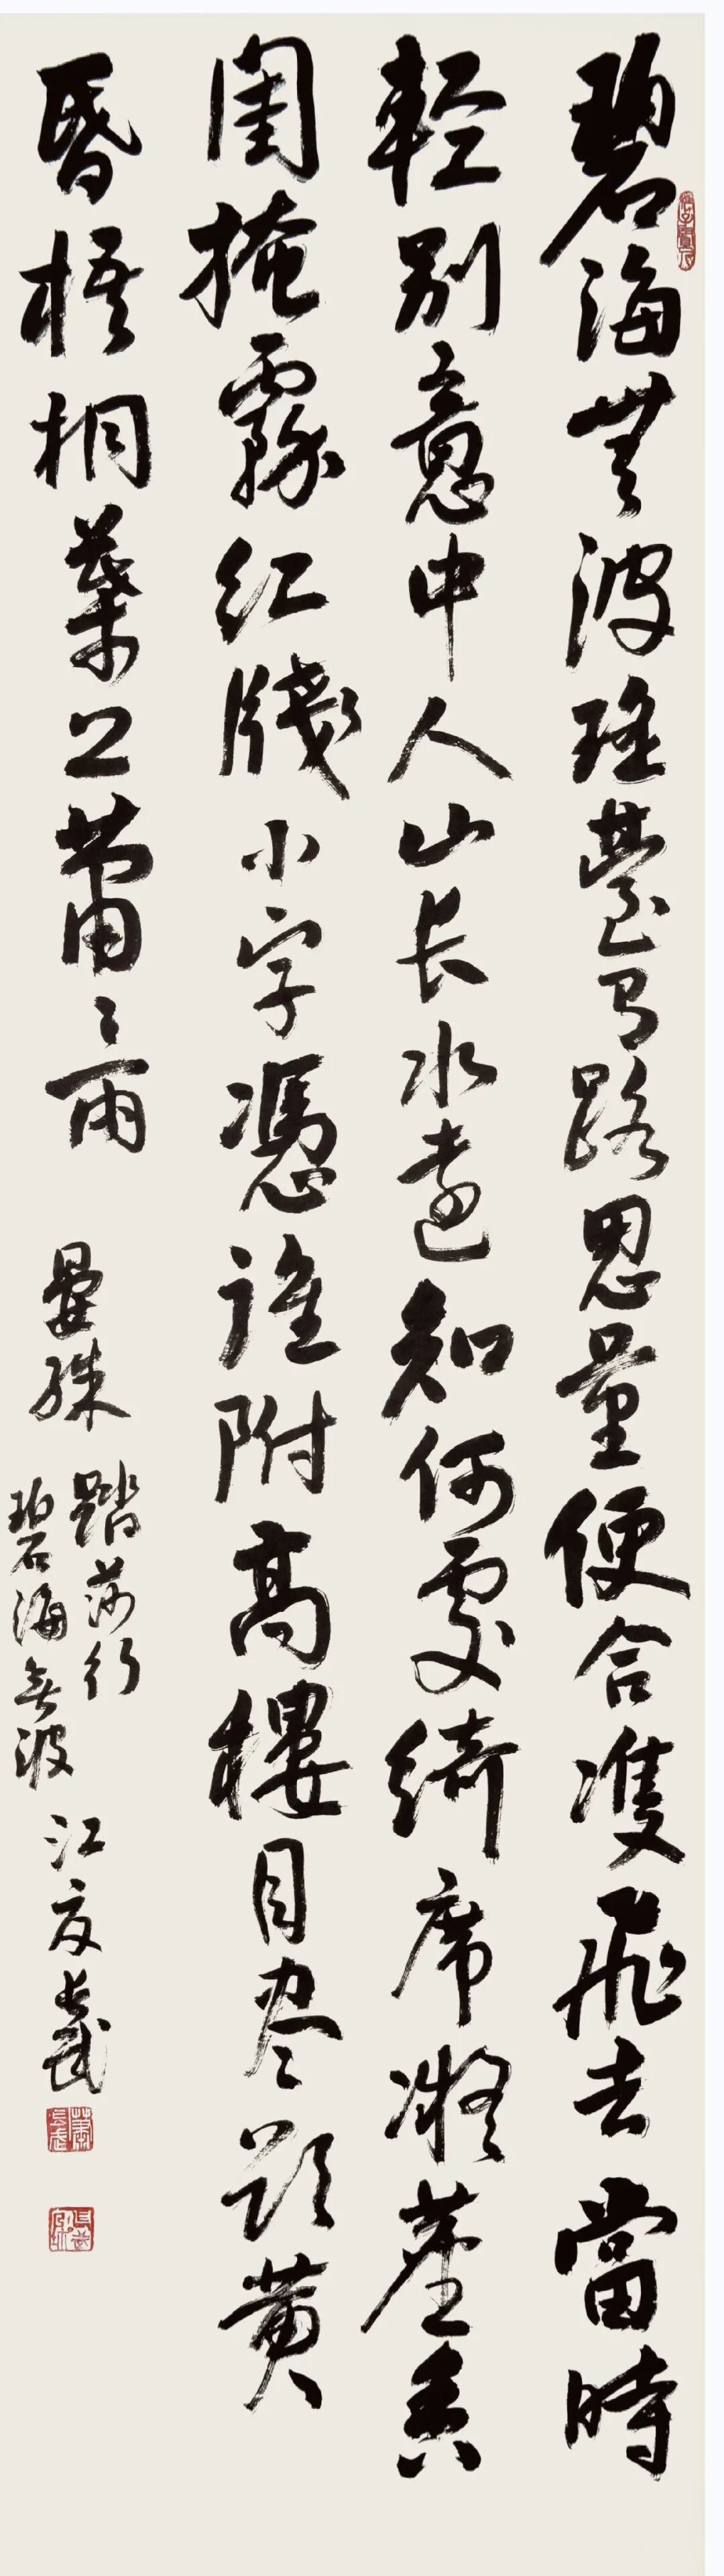 碧海無波瑤臺有路思量便合雙飛去當時
輕別意中人山長水遠知何處綺席凝塵香
閨掩霧紅牋小字憑誰附高樓目尽欲黃
昏梧桐葉上蕭〻雨
晏殊
踏莎行
碧海無波
江夏